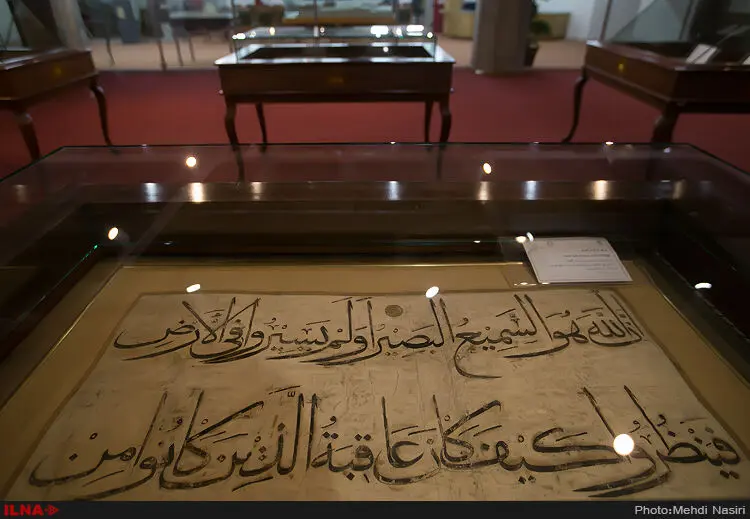 ان الله هو السميع البصير اولم يسيروا فى الارض
فينظروا كيف كان عاقبة الذين كانوا من
ILNA
Photo:Mehdi Nasiri